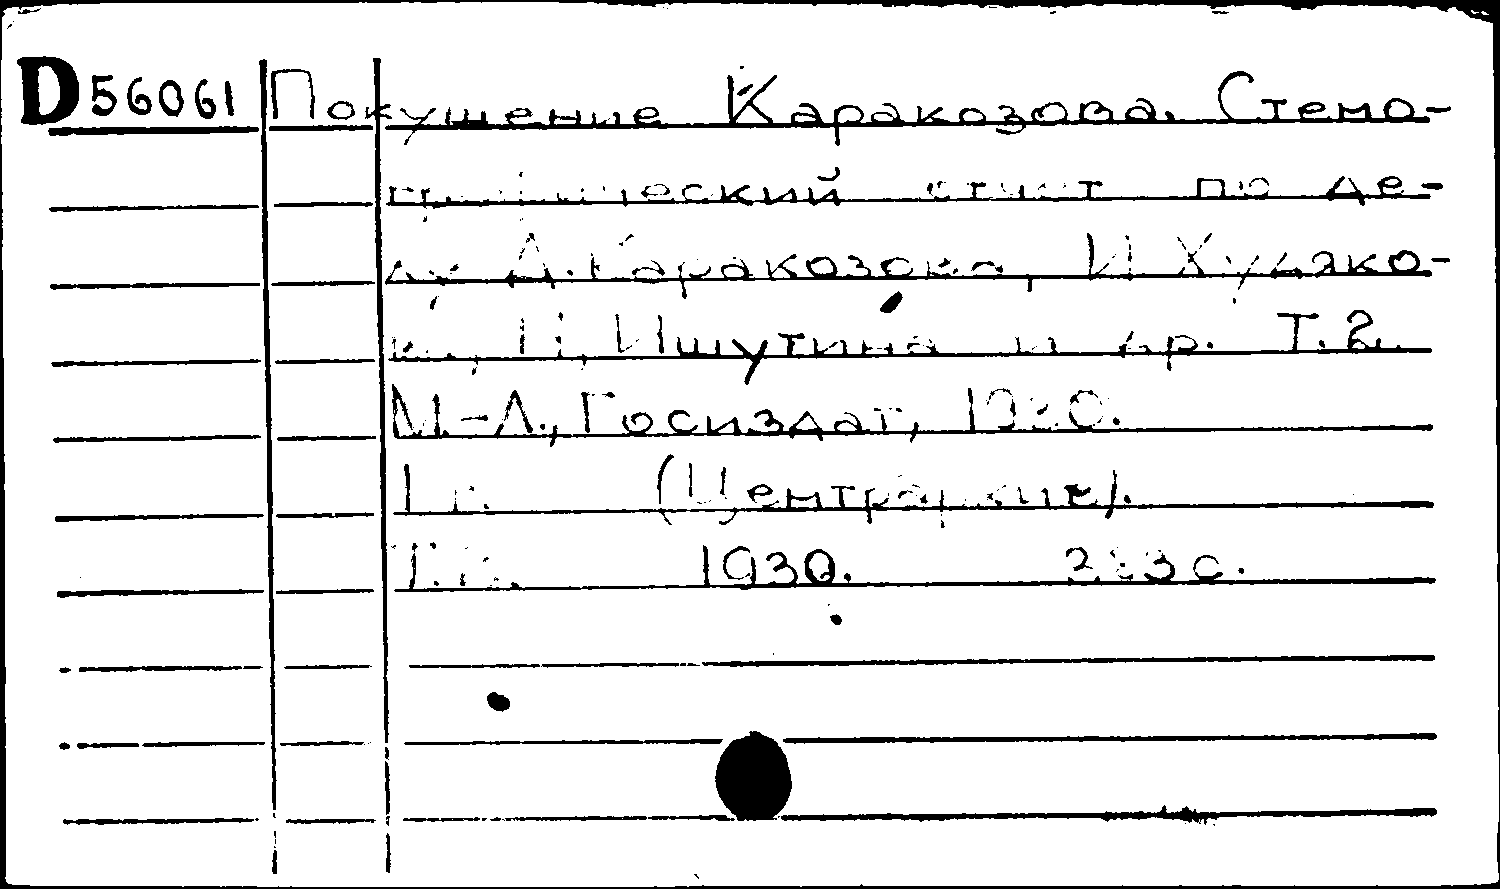 D56061 Покушение Каракозова. Стено-
графический отчет по де-
лу Д. Каракозова, И. Худяко-
ва, Н. Ишутина и др. Т.2.
М.-Л., Госиздат, 1930.
1 г. (Центрархив).
1930. с.